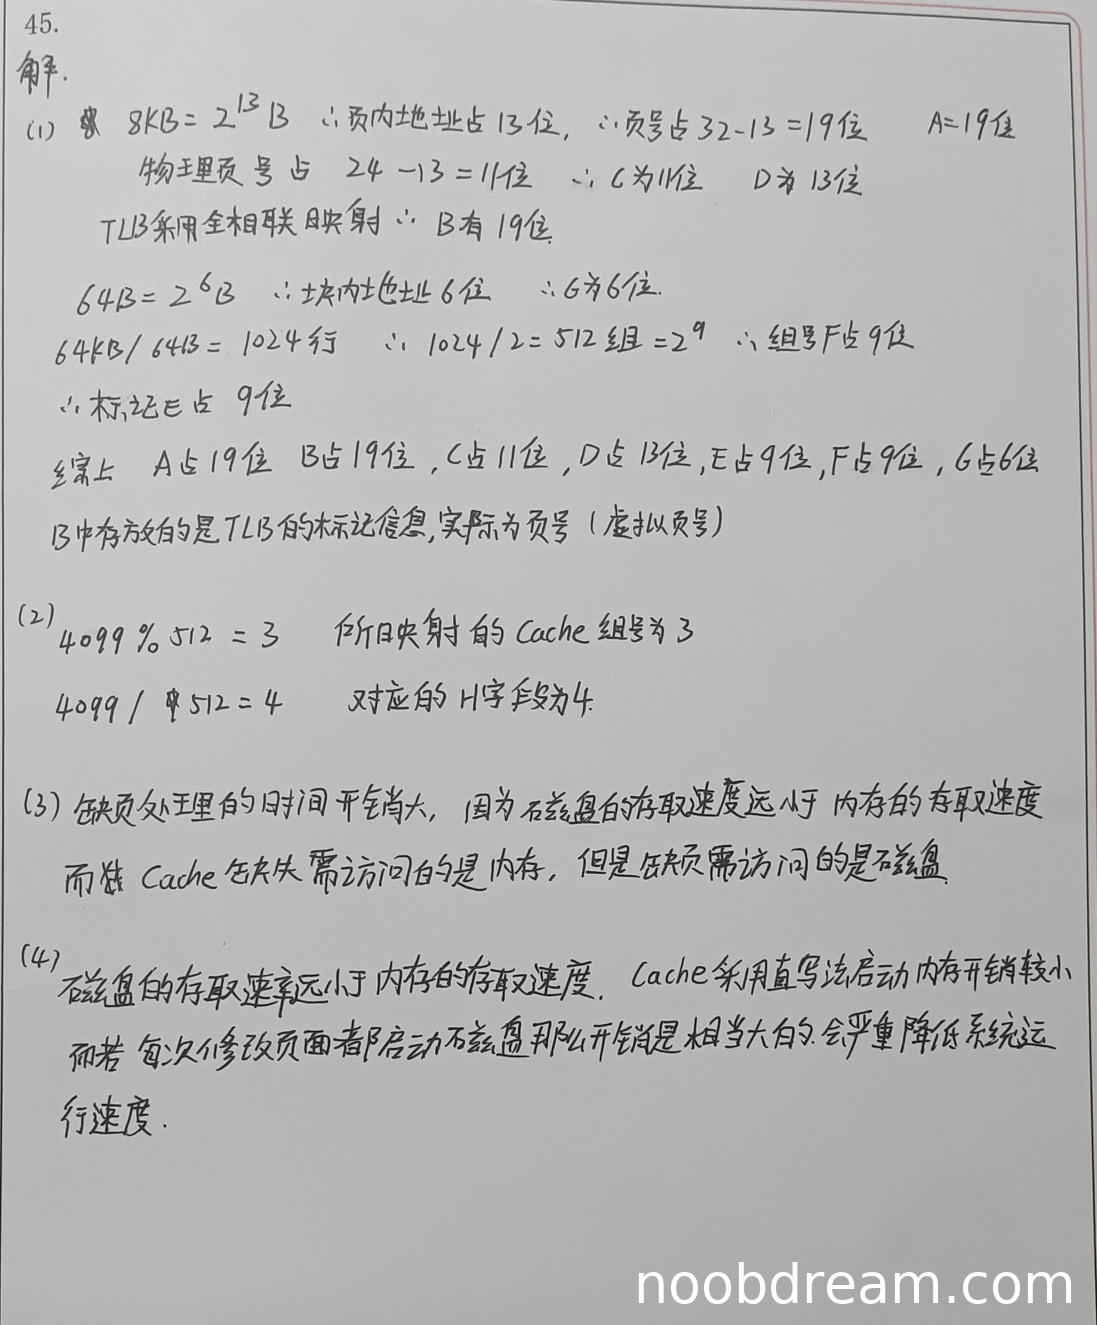 45.
解.
(1) 8KB = 2^13 B ∴页内地址占13位, ∴页号占32-13=19位 A=19位
物理页号占 24-13=11位 ∴C为11位 D为13位
TLB采用全相联映射∴ B有19位.
64B=2^6B ∴块内地址6位 ∴G为6位.
64KB/64B= 1024行 ∴ 1024/2=512组=2^9 ∴组号F占9位
∴标记E占 9位
综上 A占19位 B占19位,C占11位,D占13位,E占9位,F占9位,G占6位
B中存放的是TLB的标记信息,实际为页号(虚拟页号)
(2) 4099 % 512 = 3 所映射的Cache组号为3
4099 / 512=4 对应的H字段为4.
(3) 缺页处理的时间开销大, 因为磁盘的存取速度远小于内存的存取速度
而 Cache缺失需访问的是内存, 但是缺页需访问的是磁盘.
(4) 磁盘的存取速率远小于内存的存取速度. Cache采用直写法启动内存开销较小
而若每次修改页面都启动磁盘那么开销是相当大的.会严重降低系统运
行速度.
noobdream.com